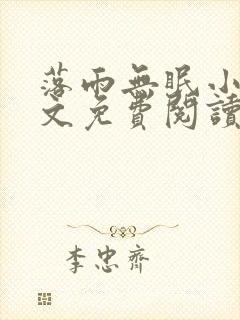 落雨無眠小
文免費閱讀
李忠齊